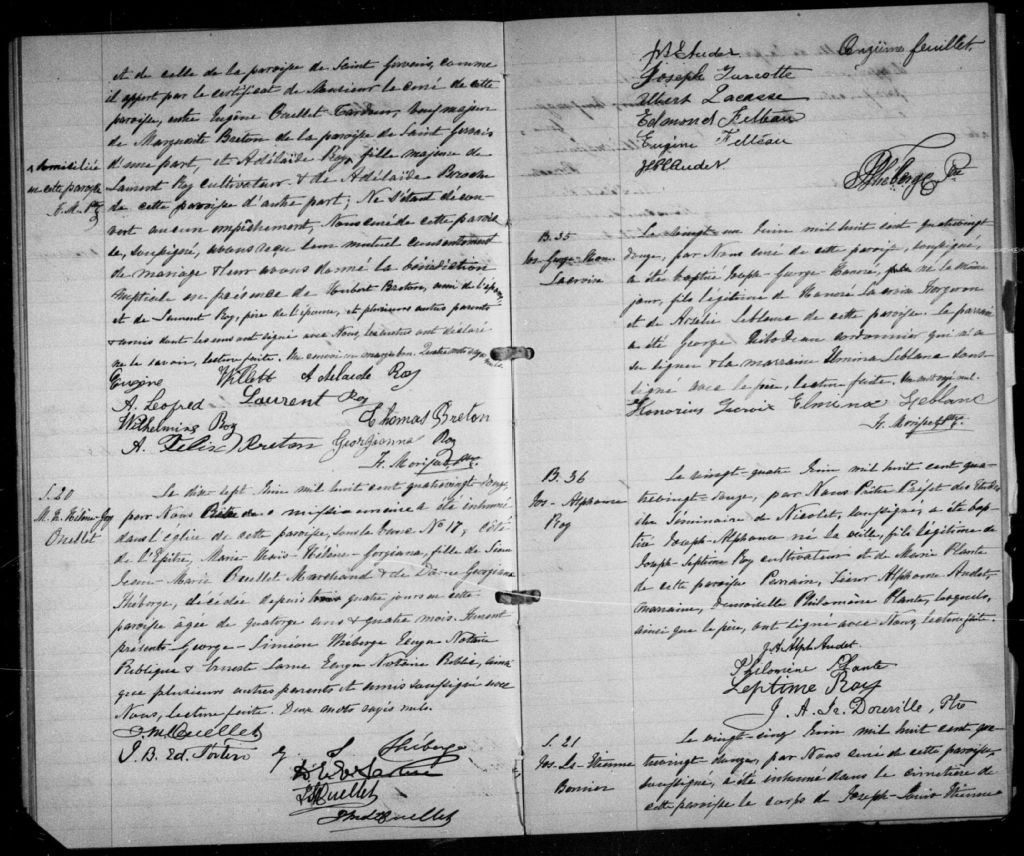 et de celle de la paroisse de Saint Gervais, comme
il appert par le certificat de Monsieur le curé de cette
paroisse, entre Eugène Ouellet veuf majeur
de Marguerite Breton de la paroisse de Saint Gervais
d'une part, et Adélaïde Roy, fille majeure de
x domiciliée
en cette paroisse
F. M. Ptre
Laurent Roy cultivateur & de Adélaïde
de cette paroisse d'autre part; Ne s'étant décou-
vert aucun empêchement, Nous curé de cette parois-
se, soussigné, avons reçu leur mutuel consentement
de mariage & leur avons donné la bénédiction
nuptiale en présence de Hubert Breton, ami de l'époux
et de Laurent Roy, père de l'épouse, et plusieurs autres parents
& amis dont les uns ont signé avec Nous, les autres ont déclaré
ne le savoir, lecture faite. Un renvoi en marge bon. Quatre mots rayés
nuls.
Eugène Willett Adelaide Roy
A. Leofred Laurent Roy
Wilhelmine Roy Thomas Breton
A. Felix Breton Georgianna Roy
F. Morisset, Ptre.
S. 20
M. M. Hélène-Geo
Ouellet
Le dix-sept Juin mil huit cent quatrevingt-douze,
par Nous missionnaire a été inhumée
dans l'église de cette paroisse, sous le banc No 17, côté
de l'Epître, Marie-Marie-Hélène-Gorgiana, fille de Sieur
Jean-Marie Ouellet Marchand & de Dame Georgiana
Théberge, décédée depuis quatre jours en cette
paroisse âgée de quatorze ans & quatre mois. Furent
présents George-Siméon Théberge Ecuyer Notaire
Publique & Ernest Larue Ecuyer Notaire Public, ainsi
que plusieurs autres parents et amis soussignés avec
Nous, lecture faite. Deux mots rayés nuls.
J M Ouellet
J. B. Ed. Fortin G. S. Théberge
Ouellet
Ouellet
J B E Audet Onzième feuillet.
Joseph Turcotte
Albert Lacasse
Edmond Filteau
Eugène Filteau
J H P Audet
Théberge, Ptre
B. 35
Jos-George-Honoré
Lacroix
Le vingt un Juin mil huit cent quatrevingt
douze, par Nous curé de cette paroisse, soussigné,
a été baptisé Joseph-George-Honoré, né le même
jour, fils légitime de Honoré Lacroix forgeron
et de Arzélie Leblanc de cette paroisse. Le parrain
a été George Bilodeau cordonnier qui n'a
su signer & la marraine Elmina Leblanc
signé avec le père, lecture faite. Un mot rayé nul.
Honorius Lacroix Elmina Leblanc
F. Morisset Ptr.
B. 36
Jos-Alphonse
Roy
Le vingt-quatre Juin mil huit cent qua-
trevingt-douze, par Nous Prêtre Préfet des Etudes
du Séminaire de Nicolet, soussigné, a été bap-
tisé Joseph-Alphonse né la veille, fils légitime de
Joseph-Septime Roy cultivateur et de Marie Plante
de cette paroisse. Parrain, Sieur Alphonse Audet,
marraine, Demoiselle Philomène Plante, lesquels,
ainsi que le père, ont signé avec Nous, lecture faite.
J. A. Alph Audet
Philomène Plante
Septime Roy
J. A. Ir. Douville, Ptre
S. 21
Jos. Ls-Etienne
Bernier
Le vingt-cinq Juin mil huit cent qua-
trevingt douze, par Nous curé de cette paroisse,
soussigné, a été inhumé dans le cimetière de
cette paroisse le corps de Joseph-Louis Etienne